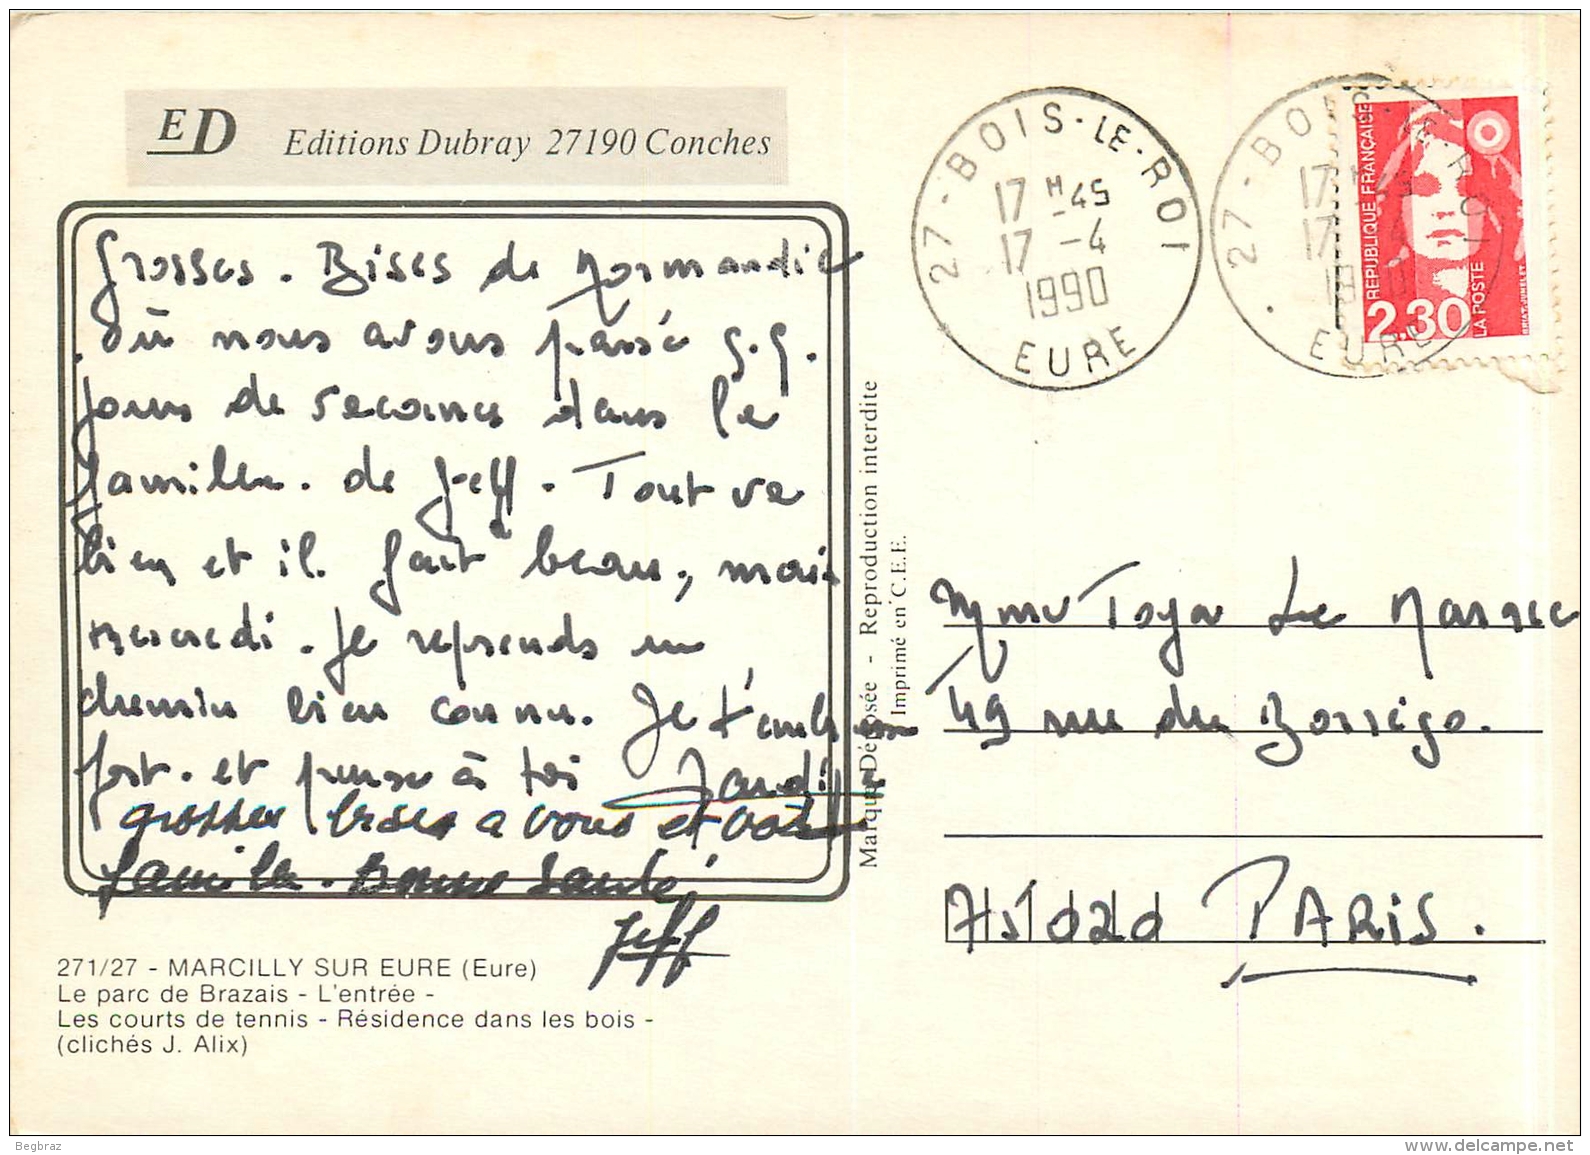 ED Editions Dubray 27190 Conches
Grosses. Bises de Normandie
où nous avons passé q.q.
jours de vacances dans la
famille. de Jeff. Tout va
bien et il fait beau, mais
mercredi. Je reprends un
chemin bien connu. Je t'embrasse
fort. et pense à toi
grosses bises a vous et votre
famille. Bonne Santé,
Jeff
271/27 - MARCILLY SUR EURE (Eure)
Le parc de Brazais - L'entrée -
Les courts de tennis - Résidence dans les bois -
(clichés J. Alix)
Marque Déposée - Reproduction interdite
Imprimé en C.E.E.
27 - BOIS-LE-ROI
17 H 45
17 - 4
1990
EURE
27 - BOIS-LE-ROI
17 H
17 - 4
19
EURE
REPUBLIQUE FRANÇAISE
2,30
LA POSTE
BRIAT-JUMELET
Mme Le
49 rue du Borrego.
75020 PARIS.
Begbraz
www.delcampe.net